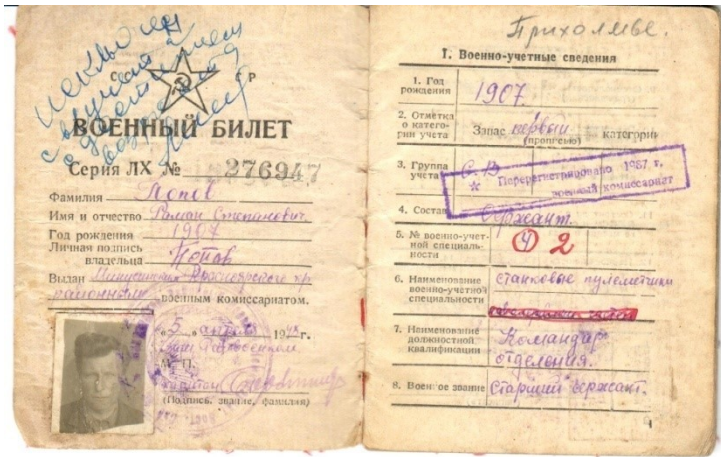 исключен
с учета
возраста
ВОЕННЫЙ БИЛЕТ
Серия ЛХ № 276947
Фамилия Попов
Имя и отчество Роман Степанович
Год рождения 1907
Личная подпись
владельца Попов
Выдан Красноярского кр
районным военным комиссариатом.
«5» апреля 19 г.
М. П.
капитан
(Подпись, звание, фамилия)
Прихолмье.
I. Военно-учетные сведения
1. Год
рождения 1907
2. Отметка
о катего-
рии учета Запас первой категории
(прописью)
3. Группа
учета С.В
* Перерегистрировано 1967 г.
военный комиссариат
4. Состав Сержант.
5. № военно-учет-
ной специаль-
ности 2
6. Наименование
военно-учетной
специальности станковые пулеметчики
7. Наименование
должностной
квалификации Командир
отделения.
8. Военное звание Старший сержант.